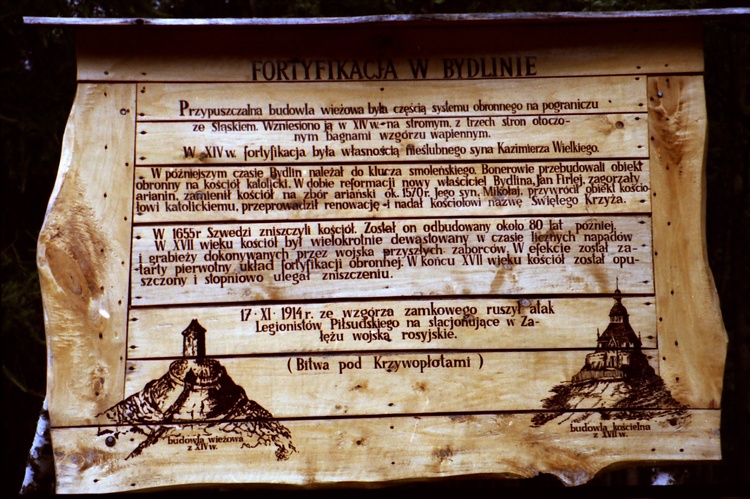 FORTYFIKACJA W BYDLINIE
Przypuszczalna budowla wieżowa była częścią systemu obronnego na pograniczu
ze Śląskiem. Wzniesiono ją w XIV w. na stromym, z trzech stron otoczo-
nym bagnami wzgórzu wapiennym.
W XIV w. fortyfikacja była własnością nieślubnego syna Kazimierza Wielkiego.
W późniejszym czasie Bydlin należał do klucza smoleńskiego. Bonerowie przebudowali obiekt
obronny na kościół katolicki. W dobie reformacji nowy właściciel Bydlina, Jan Firlej, zagorzały
arianin, zamienił kościół na zbór ariański ok. 1570r. Jego syn, Mikołaj, przywrócił obiekt kościo-
łowi katolickiemu, przeprowadził renowację i nadał kościołowi nazwę Świętego Krzyża.
W 1655r Szwedzi zniszczyli kościół. Został on odbudowany około 80 lat później.
W XVII wieku kościół był wielokrotnie dewastowany w czasie licznych napadów
i grabieży dokonywanych przez wojska przyszłych zaborców. W efekcie został za-
tarty pierwotny układ fortyfikacji obronnej. W końcu XVII wieku kościół został opu-
szczony i stopniowo ulegał zniszczeniu.
17·XI·1914r. ze wzgórza zamkowego ruszył atak
Legionistów Piłsudskiego na stacjonujące w Za-
łężu wojska rosyjskie.
(Bitwa pod Krzywopłotami)
budowla wieżowa
z XIV w.
budowla kościelna
z XVII w.